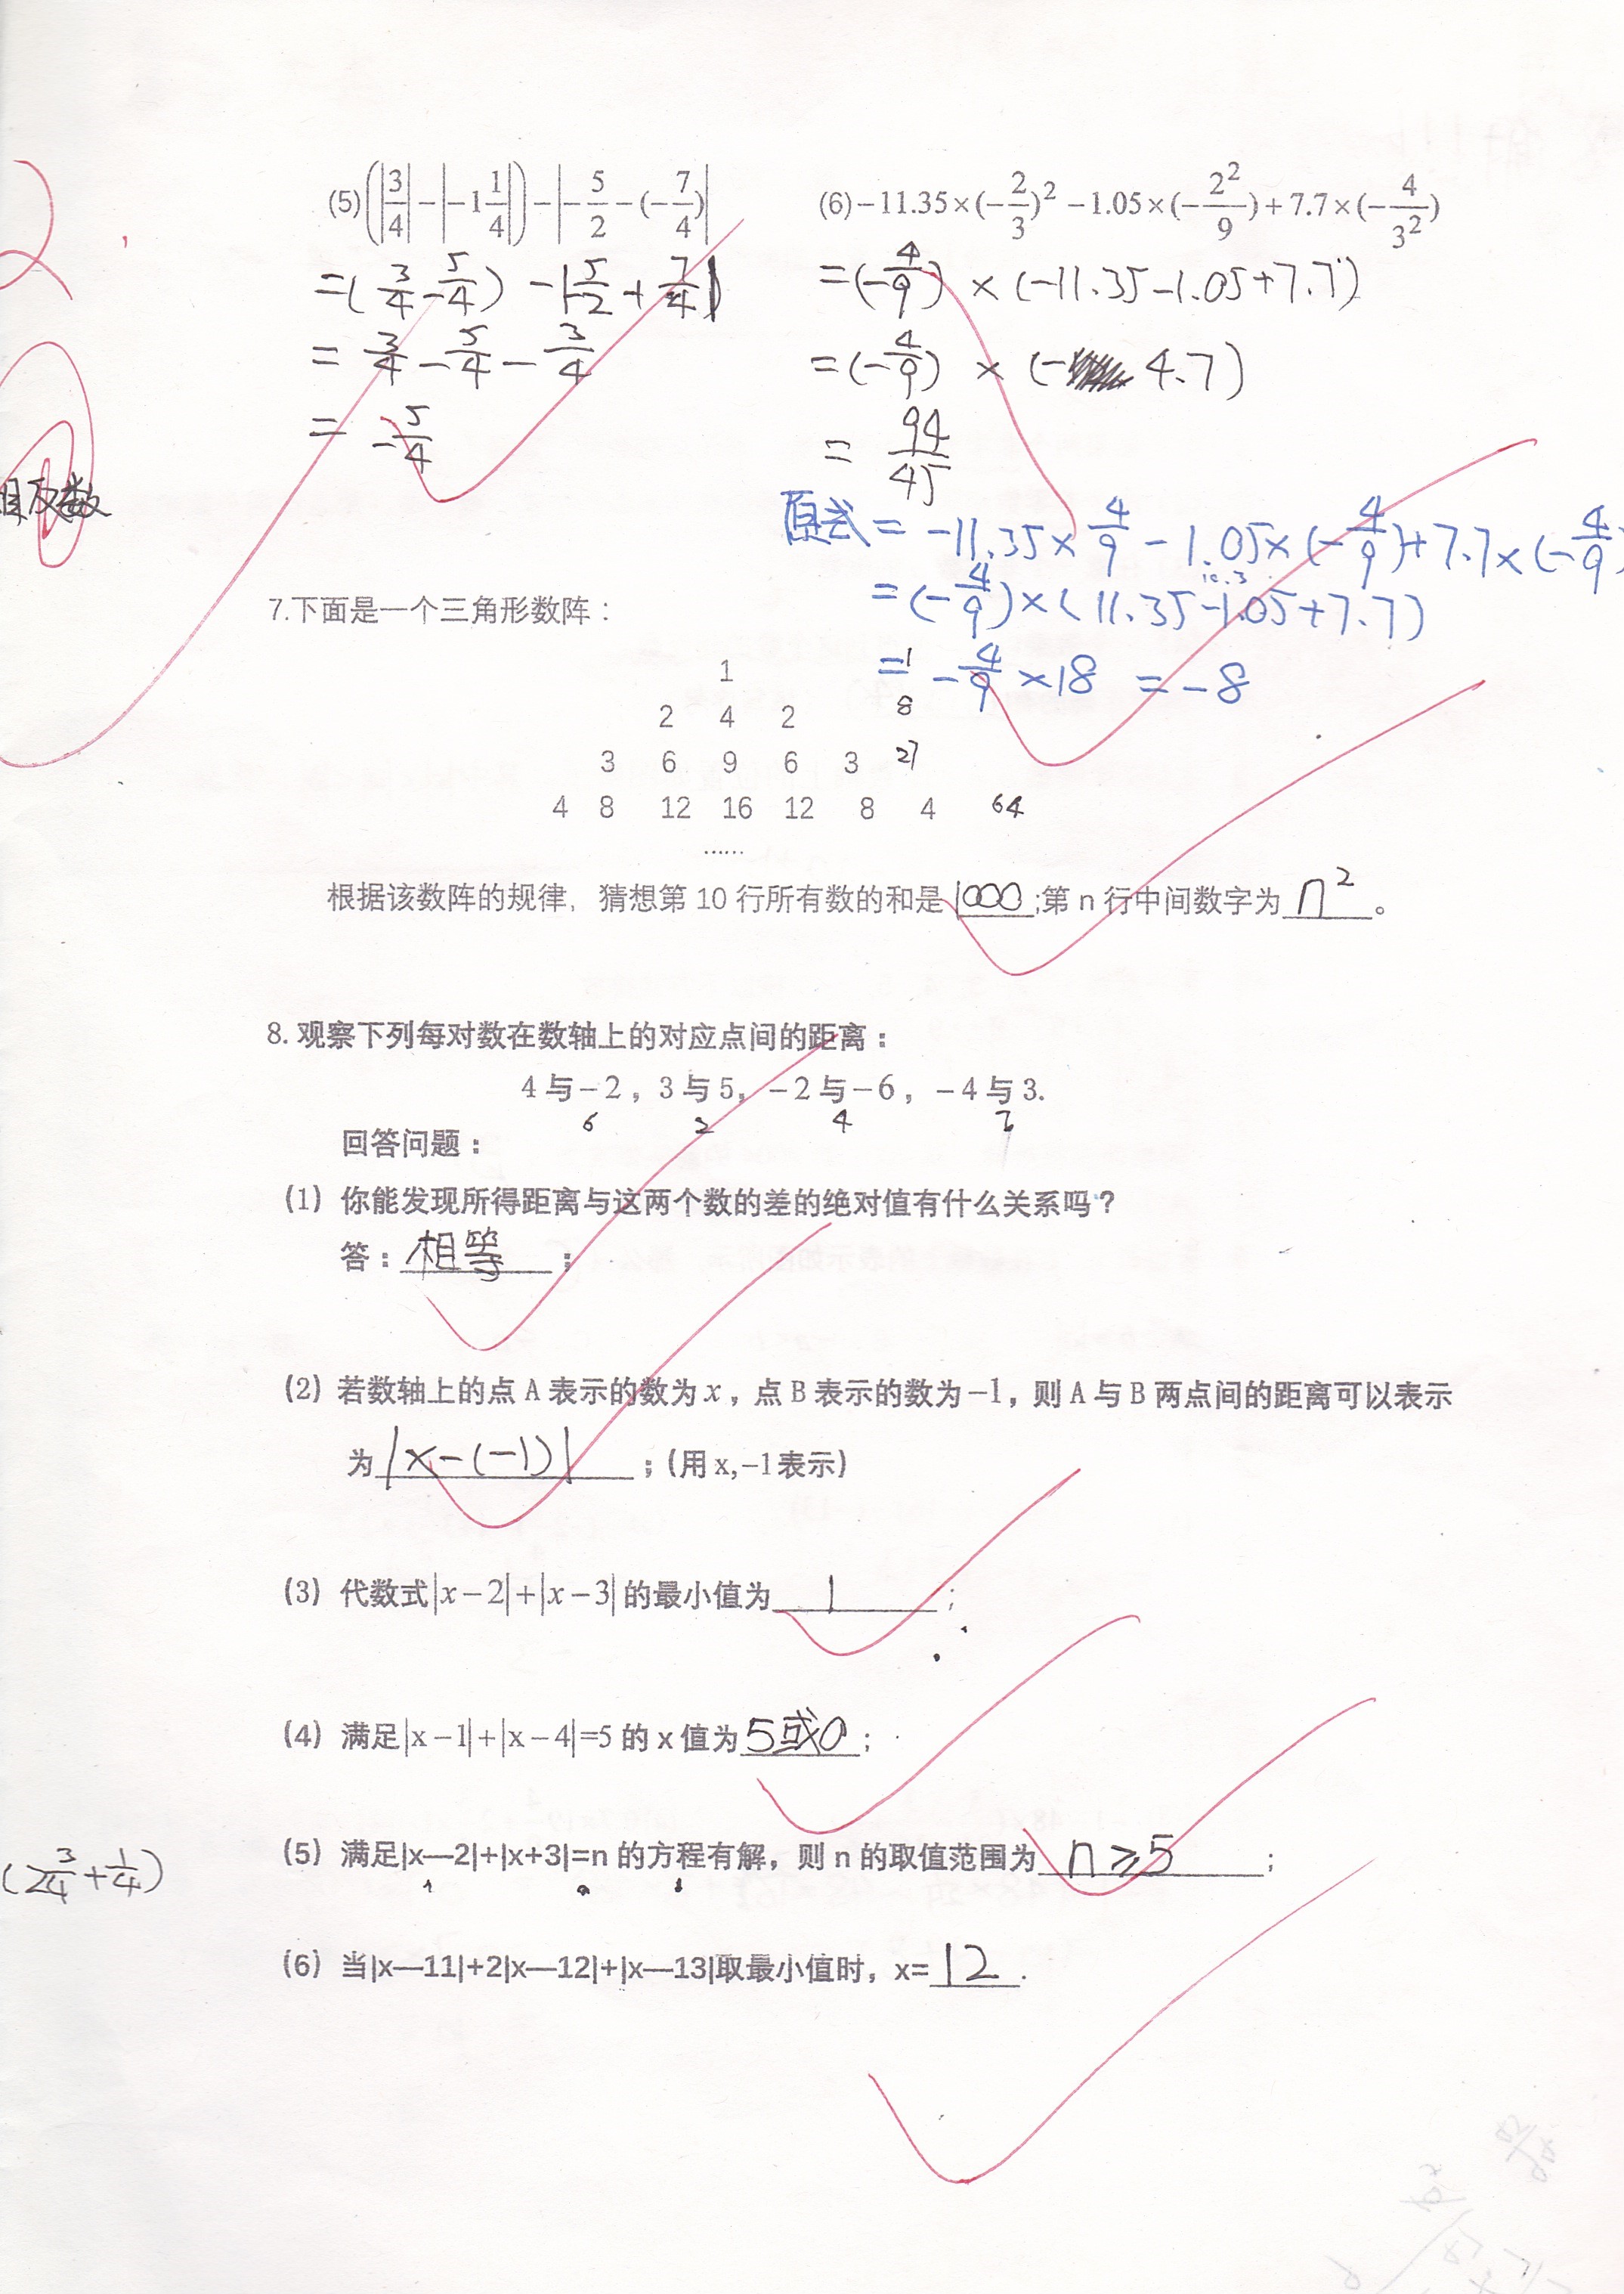 (5)(|3/4|-|-1 1/4|)-|-5/2-(-7/4)|
(6)-11.35×(-2/3)²-1.05×(-2²/9)+7.7×(-4/3²)
=(3/4-5/4)-|-5/2+7/4|
=3/4-5/4-3/4
=-5/4
=(-4/9)×(-11.35-1.05+7.7)
=(-4/9)×(-4.7)
=94/45
原式=-11.35×4/9-1.05×(-4/9)+7.7×(-4/9)
10.3
=(-4/9)×(11.35-1.05+7.7)
=-4/9×18 =-8
相反数
7.下面是一个三角形数阵：
1 1
2 4 2 8
3 6 9 6 3 27
4 8 12 16 12 8 4 64
……
根据该数阵的规律，猜想第 10 行所有数的和是1000;第 n 行中间数字为n²。
8.观察下列每对数在数轴上的对应点间的距离：
4与-2，3与5，-2与-6，-4与3.
6 2 4 7
回答问题：
(1) 你能发现所得距离与这两个数的差的绝对值有什么关系吗？
答：相等；
(2) 若数轴上的点 A 表示的数为 x，点 B 表示的数为-1，则 A 与 B 两点间的距离可以表示
为|x-(-1)|；(用 x,-1 表示)
(3) 代数式|x-2|+|x-3|的最小值为1；
(4) 满足|x-1|+|x-4|=5 的 x 值为5或0；
(5) 满足|x—2|+|x+3|=n 的方程有解，则 n 的取值范围为n≥5；
(2 3/4+1/4)
(6) 当|x—11|+2|x—12|+|x—13|取最小值时，x=12.